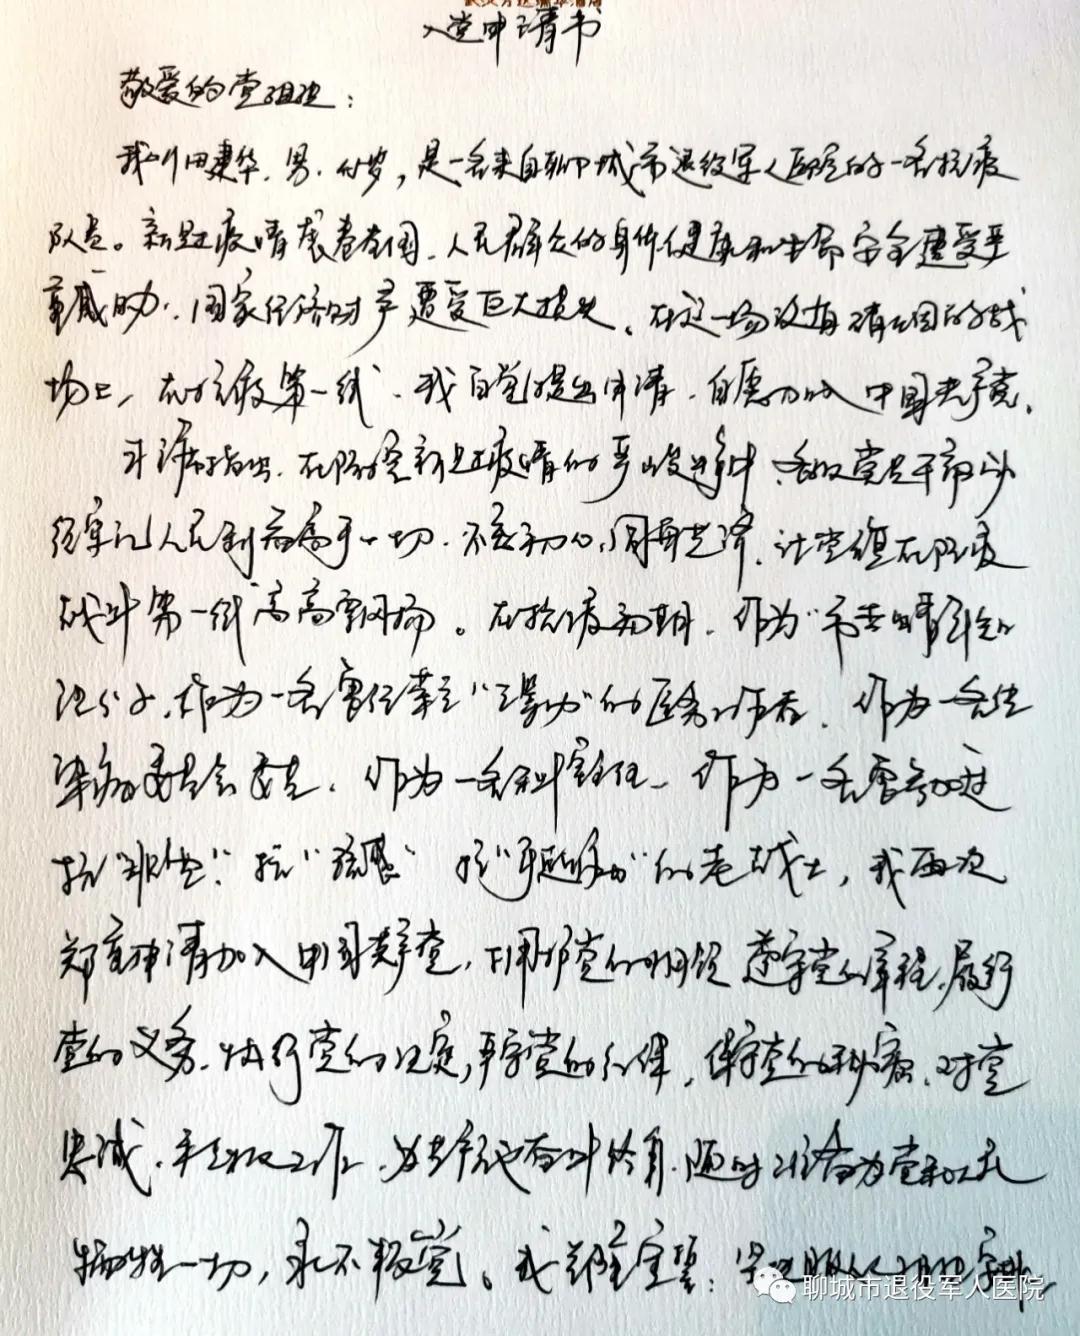 入党申请书
敬爱的党组织：
我叫田建华，男，岁，是一名来自聊城市退役军人医院的一名抗疫
队员。新冠疫情袭卷全国，人民群众的身体健康和生命安全遭受严
重威胁，国家经济财产遭受巨大损失。在这一场没有硝烟的战
场上，在抗疫第一线，我自觉提出申请，自愿加入中国共产党。
指出，在防控新冠疫情的严峻斗争中，各级党员干部必
须牢记人民利益高于一切，不忘初心，同舟共济，让党旗在防疫
战斗第一线高高飘扬。在抗疫初期，作为
分子，作为一名曾经荣立“三等功”的医务工作者，作为一名传
染病委员会委员，作为一名科室主任，作为一名曾参加过
抗“非典”、抗“”抗“”的老战士，我再次
郑重申请加入中国共产党，拥护党的纲领，遵守党的章程，履行
党的义务，执行党的决定，严守党的纪律，保守党的秘密，对党
忠诚，积极工作，为共产主义奋斗终身，随时准备为党和人民
牺牲一切，永不叛党。我郑重宣誓：坚决服从组织安排，
聊城市退役军人医院